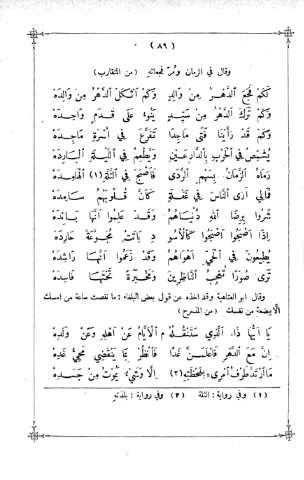 ( ٨٩ )
وقال في الزمان ومُرّ فجعاته (من المتقارب)
كَكَمْ فَجَعَ الدَّهْرُ مِنْ وَالِدٍ وَكَمْ أَثْكَلَ الدَّهْرُ مِنْ وَالِدَهْ
وَكَمْ تَرَكَ الدَّهْرُ مِنْ سَيِّدٍ يَنُوءُ عَلَى قَدَمٍ وَاحِدَهْ
وَكَمْ قَدْ رَأَيْنَا فَتًى مَاجِدًا تَفَرَّعَ فِي أُسْرَةٍ مَاجِدَهْ
يُشَمِّصُ فِي الْحَرْبِ بِالدَّارِعِينَ وَيُطْعِمُ فِي اللَّيْلَةِ الْبَارِدَهْ
رَمَاهُ الزَّمَانُ بِسَهْمِ الرَّدَى فَأَصْبَحَ فِي الثَّلَّةِ (١) الْهَامِدَهْ
فَمَا لِي أَرَى النَّاسَ فِي غَفْلَةٍ كَأَنَّ قُلُوبَهُمْ سَامِدَهْ
شَرَوْا بِرِضَا اللهِ دُنْيَاهُمُ وَقَدْ عَلِمُوا أَنَّهَا بَائِدَهْ
إِذَا أَصْبَحُوا أَصْبَحُوا كَالْأُسُو دِ بَاتَتْ مُجَوَّعَةً حَارِدَهْ
يُطِيعُونَ فِي الْغَيِّ أَهْوَاءَهُمْ وَقَدْ زَعَمُوا أَنَّهَا رَاشِدَهْ
تَرَى صُوَرًا تُعْجِبُ النَّاظِرِينَ وَمَخْبَرَةً تَحْتَهَا فَاسِدَهْ
وقال ابو العتاهية وقد اخذه عن قول بعض البلغاء : ما نقصت ساعة من امسك
الا بضعة من نفسك (من المنسرح)
يَا أَيُّهَا ذَا الَّذِي سَتَنْقُلُهُ م الْأَيَّامُ عَنْ أَهْلِهِ وَعَنْ وَلَدِهْ
إِنَّ مَعَ الدَّهْرِ فَاعْلَمَنَّ غَدًا فَانْظُرْ بِمَا يَنْقَضِي مَجِيءُ غَدِهْ
مَا ارْتَدَّ طَرْفُ امْرِئٍ بِلَحْظَتِهِ (٢) إِلَّا وَشَيْءٌ يَمُوتُ مِنْ جَسَدِهْ
(١) وفي رواية : التلة (٢) وفي رواية : بلذته